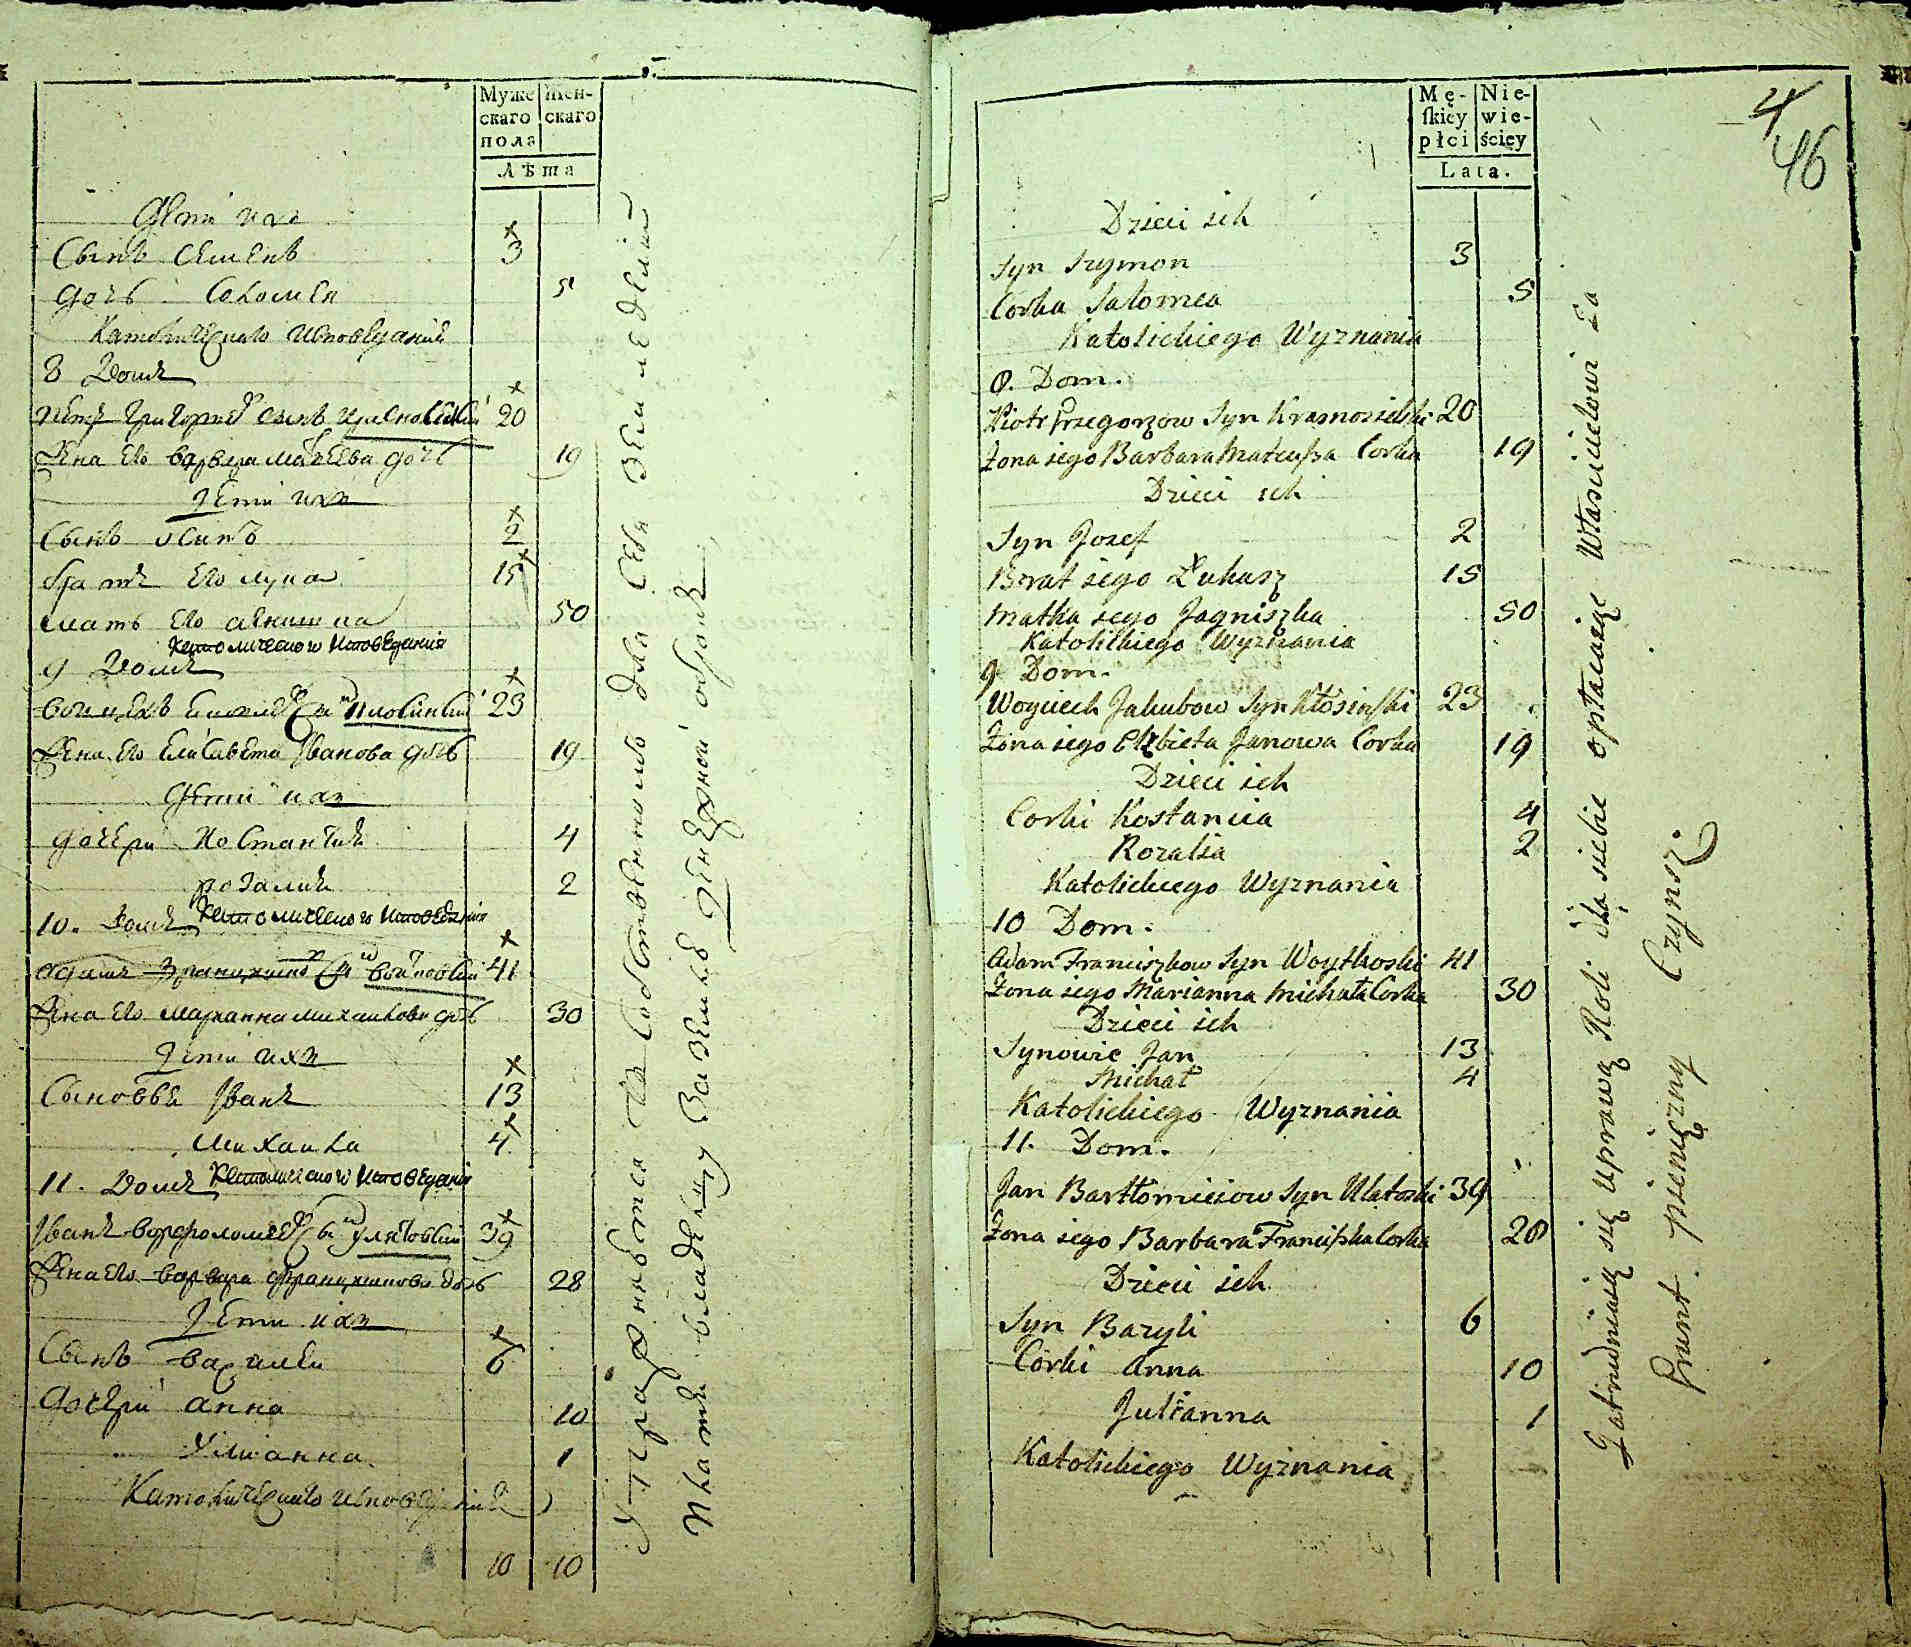 Муже
скаго
пола
жен-
скаго
Лѣта
Дѣти ихъ
Сынъ Семенъ 3
дочь Саломея 5
Католическаго исповеданія
8 Домъ
Петръ Григорьевъ сынъ 20
Жена его варвара матеева дочь 19
Дети ихъ
Сынъ осипъ 2
братъ его лука 15
мать его 50
Католическаго исповедания
9 Домъ
23
Жена его Елисавета Іванова дочь 19
Дети ихъ
дочери Костанція 4
розалия 2
10. Домъ Католическаго исповедания
адамъ 41
Жена его марианна михайлова дочь 30
Дети ихъ
Сыновья Іванъ 13
михаила 4
11. Домъ Католическаго исповедания
Іванъ 39
Жена его варвара францишкова дочь 28
Дети ихъ
Сынъ василей 6
дочери анна 10
Улианна 1
Католическаго исповеданія
10 10
Mę-
skiey
płci
Nie-
wie-
ściey
Lata.
4
46
Dzieci ich
Syn Szymon 3
Corka Salomea 5
Katolickiego Wyznania
8. Dom.
Piotr Grzegorzow Syn Krasnosielski 20
Żona iego Barbara Mateusza Corka 19
Dzieci ich
Syn Jozef 2
Brat iego Łukasz 15
Matka iego Jagniszka 50
Katolickiego Wyznania
9 Dom.
Woyciech Jakubow Syn Kłosinski 23
Żona iego Elzbieta Janowa Corka 19
Dzieci ich
Corki Kostancia 4
Rozalia 2
Katolickiego Wyznania
10 Dom.
Adam Franciszkow Syn Woytkoski 41
Żona iego Marianna Michała Corka 30
Dzieci ich
Synowie Jan 13
Michał 4
Katolickiego Wyznania
11. Dom.
Jan Bartłomieiow Syn Ulatoski 39
Żona iego Barbara Franciszka Corka 28
Dzieci ich
Syn Bazyli 6
Corki Anna 10
Julianna 1
Katolickiego Wyznania
Zatrudniaią się uprawą Roli dla siebie opłacaiąc Własicielowi za
Grunt pieniężny Czynsz